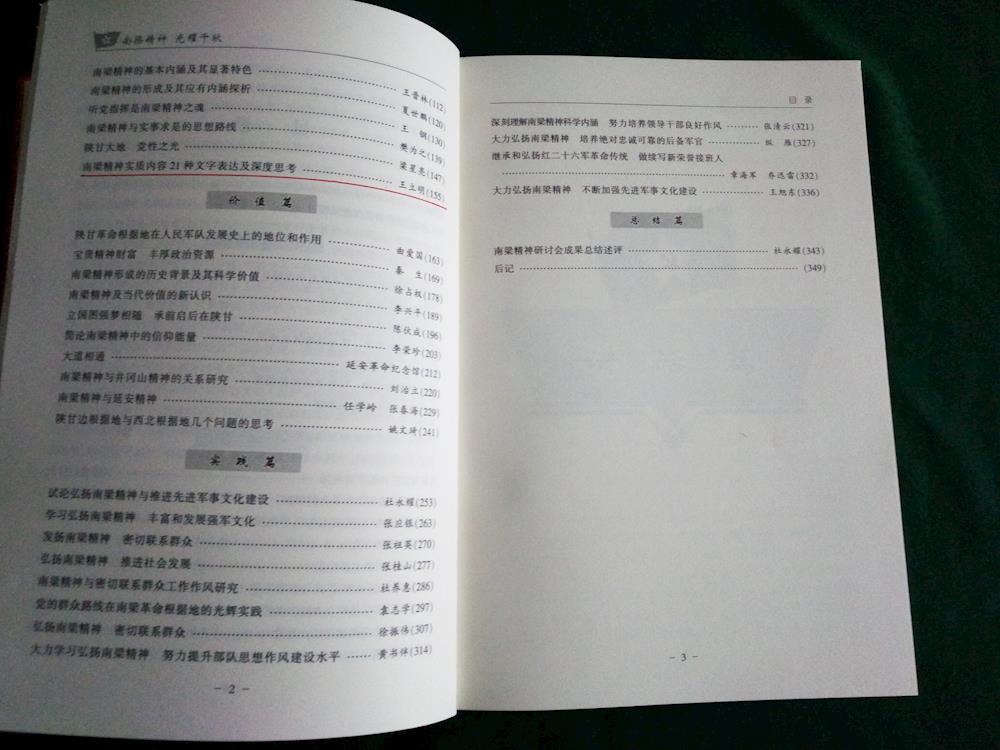 南梁精神 光耀千秋
南梁精神的基本内涵及其显著特色 王晋林(112)
南梁精神的形成及其应有内涵探析 夏世鹏(120)
听党指挥是南梁精神之魂 王 钢(130)
南梁精神与实事求是的思想路线 樊为之(139)
陕甘大地 党性之光 梁星亮(147)
南梁精神实质内容21种文字表达及深度思考 王立明(155)
价值篇
陕甘革命根据地在人民军队发展史上的地位和作用 曲爱国(163)
宝贵精神财富 丰厚政治资源 秦 生(169)
南梁精神形成的历史背景及其科学价值 徐占权(178)
南梁精神及当代价值的新认识 李兴平(189)
立国图强梦相随 承前启后在陕甘 陈伏成(196)
简论南梁精神中的信仰能量 李荣珍(203)
大道相通 延安革命纪念馆(212)
南梁精神与井冈山精神的关系研究 刘治立(220)
南梁精神与延安精神 任学岭 张春海(229)
陕甘边根据地与西北根据地几个问题的思考 姚文琦(241)
实践篇
试论弘扬南梁精神与推进先进军事文化建设 杜永耀(253)
学习弘扬南梁精神 丰富和发展强军文化 张应银(263)
发扬南梁精神 密切联系群众 张祖英(270)
弘扬南梁精神 推进社会发展 张桂山(277)
南梁精神与密切联系群众工作作风研究 杜养惠(286)
党的群众路线在南梁革命根据地的光辉实践 袁志学(297)
弘扬南梁精神 密切联系群众 徐振伟(307)
大力学习弘扬南梁精神 努力提升部队思想作风建设水平 黄书伴(314)
- 2 -
目 录
深刻理解南梁精神科学内涵 努力培养领导干部良好作风 张清云(321)
大力弘扬南梁精神 培养绝对忠诚可靠的后备军官 雁(327)
继承和弘扬红二十六军革命传统 做续写新荣誉接班人
章海军 乔迅雷(332)
大力弘扬南梁精神 不断加强先进军事文化建设 王旭东(336)
总结篇
南梁精神研讨会成果总结述评 杜永耀(343)
后记 (349)
- 3 -